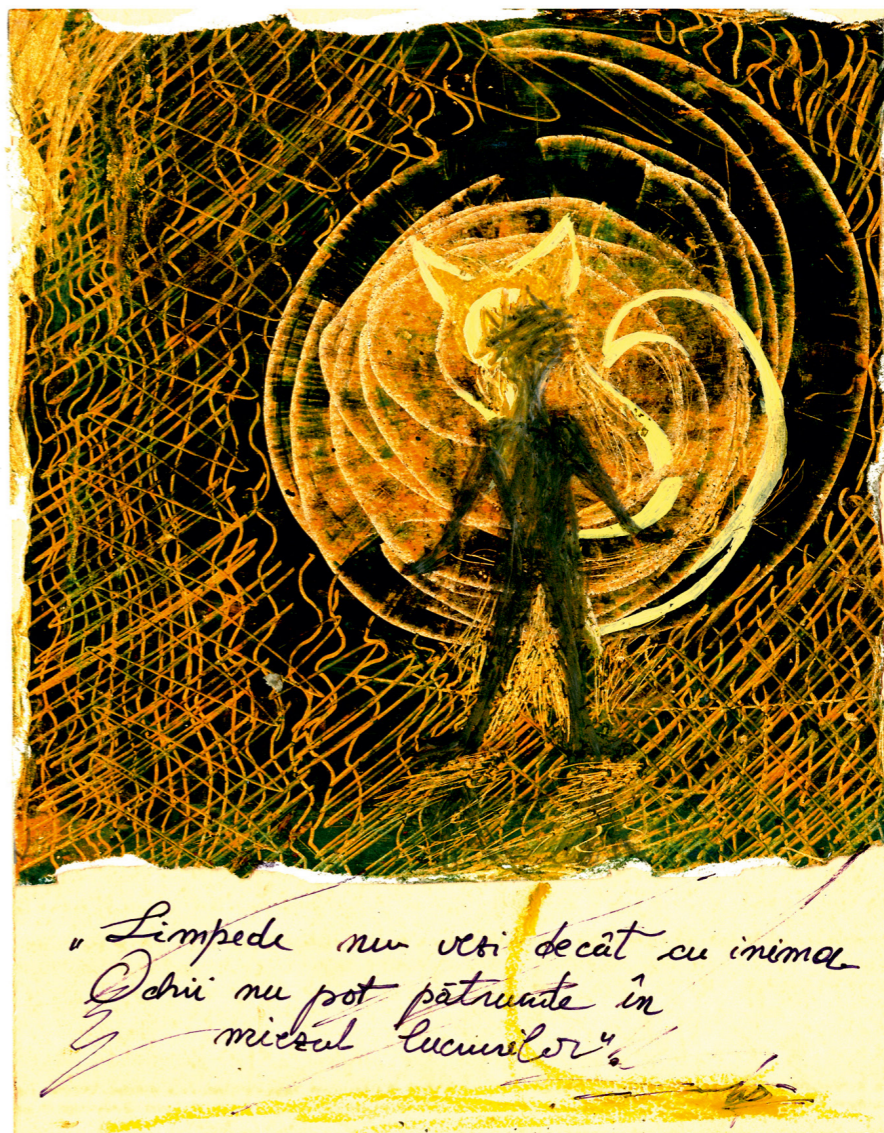 „Limpede nu vezi decât cu inima
Ochii nu pot pătrunde în
miezul lucrurilor".